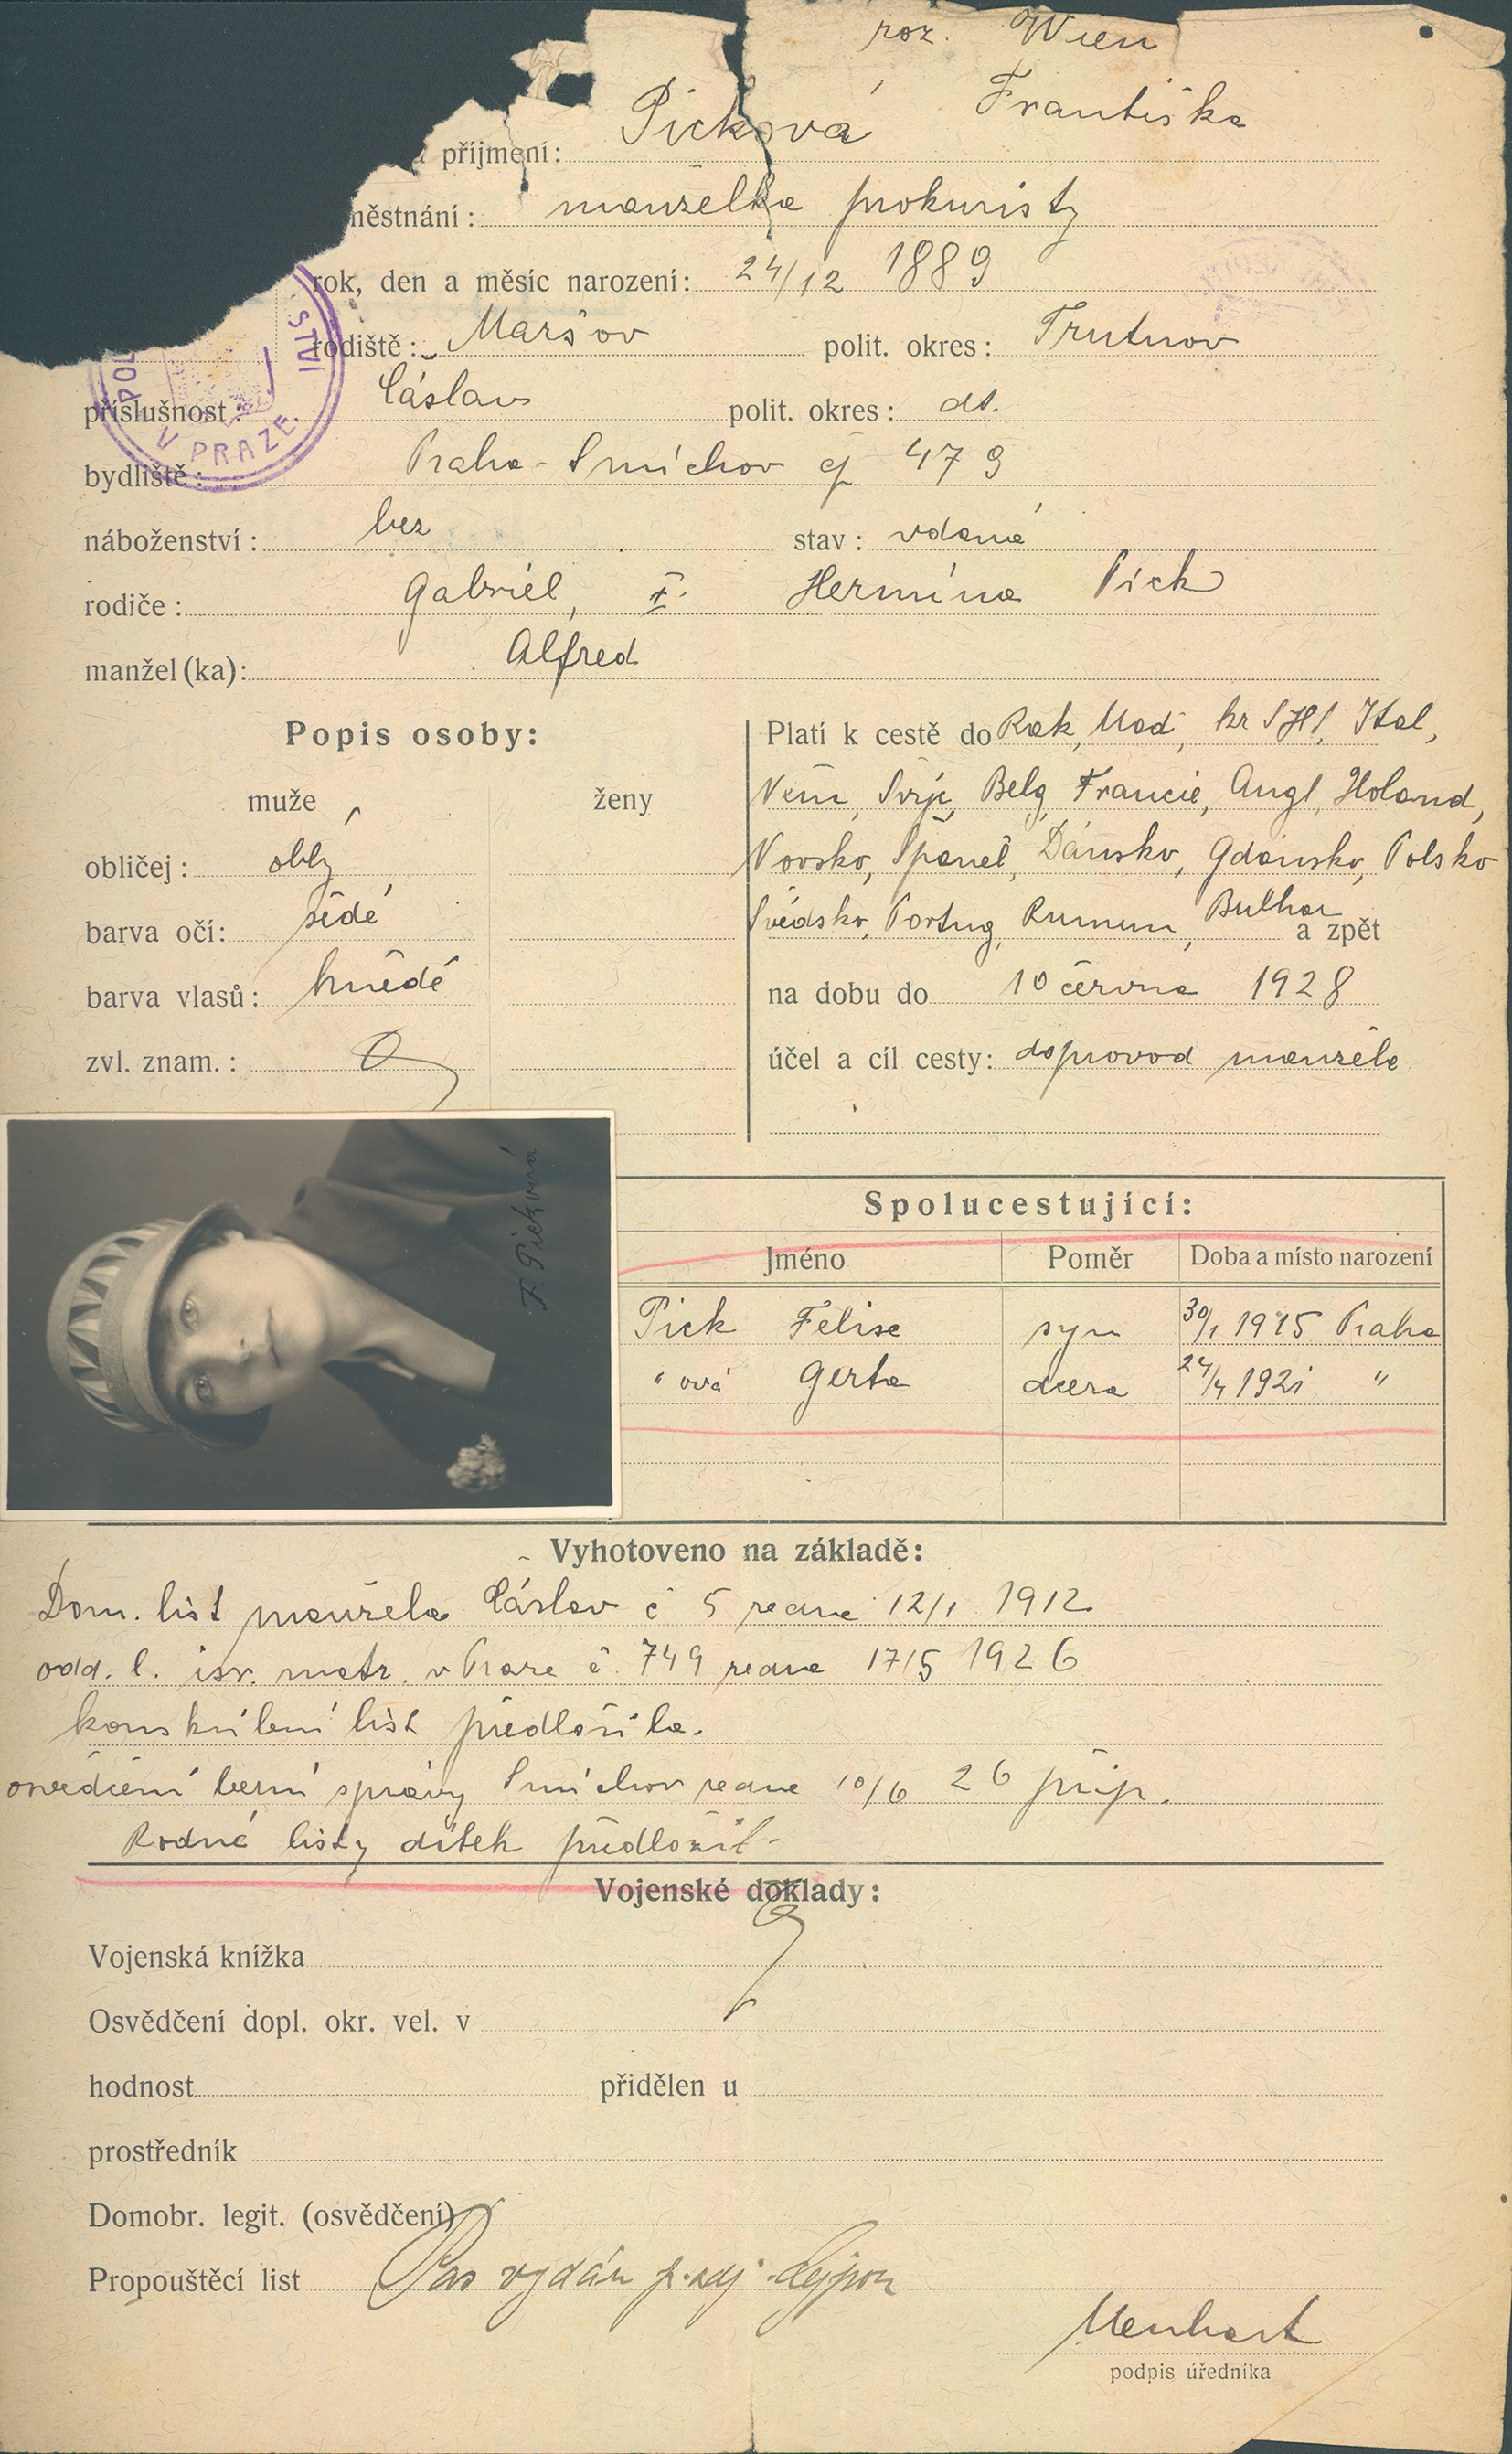 roz. Wien
příjmení: Picková Františka
městnání: manželka prokuristy
rok, den a měsíc narození: 24/12 1889
rodiště: Maršov polit. okres: Trutnov
příslušnost: Čáslav polit. okres: dt.
bydliště: Praha-Smíchov čp 479
náboženství: bez stav: vdaná
rodiče: Gabriel, Hermína Pick
manžel(ka): Alfred
POL
STVÍ
V PRAZE
Popis osoby:
muže ženy
obličej: oblý
barva očí: šedé
barva vlasů: hnědé
zvl. znam.:
Platí k cestě do Rak, Maď, kr SHS, Ital,
Něm, Švýc, Belg, Francie, Angl, Holand,
Norsko, Španěl, Dánsko, Gdansko, Polsko
Švédsko, Portug, Rumun, Bulhar a zpět
na dobu do 10 června 1928
účel a cíl cesty: doprovod manžela
F. Picková
Spolucestující:
Jméno Poměr Doba a místo narození
Pick Felix syn 30/1 1915 Praha
" ová Gerta dcera 24/4 1921 "
Vyhotoveno na základě:
Dom. list manžela Čáslav č 5 ze dne 12/1 1912
odd. l. isr. matr. v Praze č. 749 ze dne 17/5 1926
konskribční list předložila.
osvědčení berní správy Smíchov ze dne 10/6 26 přip.
Rodné listy dítek předložil-
Vojenské doklady:
Vojenská knížka
Osvědčení dopl. okr. vel. v
hodnost přidělen u
prostředník
Domobr. legit. (osvědčení)
Propouštěcí list Pas vydán
Menhart
podpis úředníka